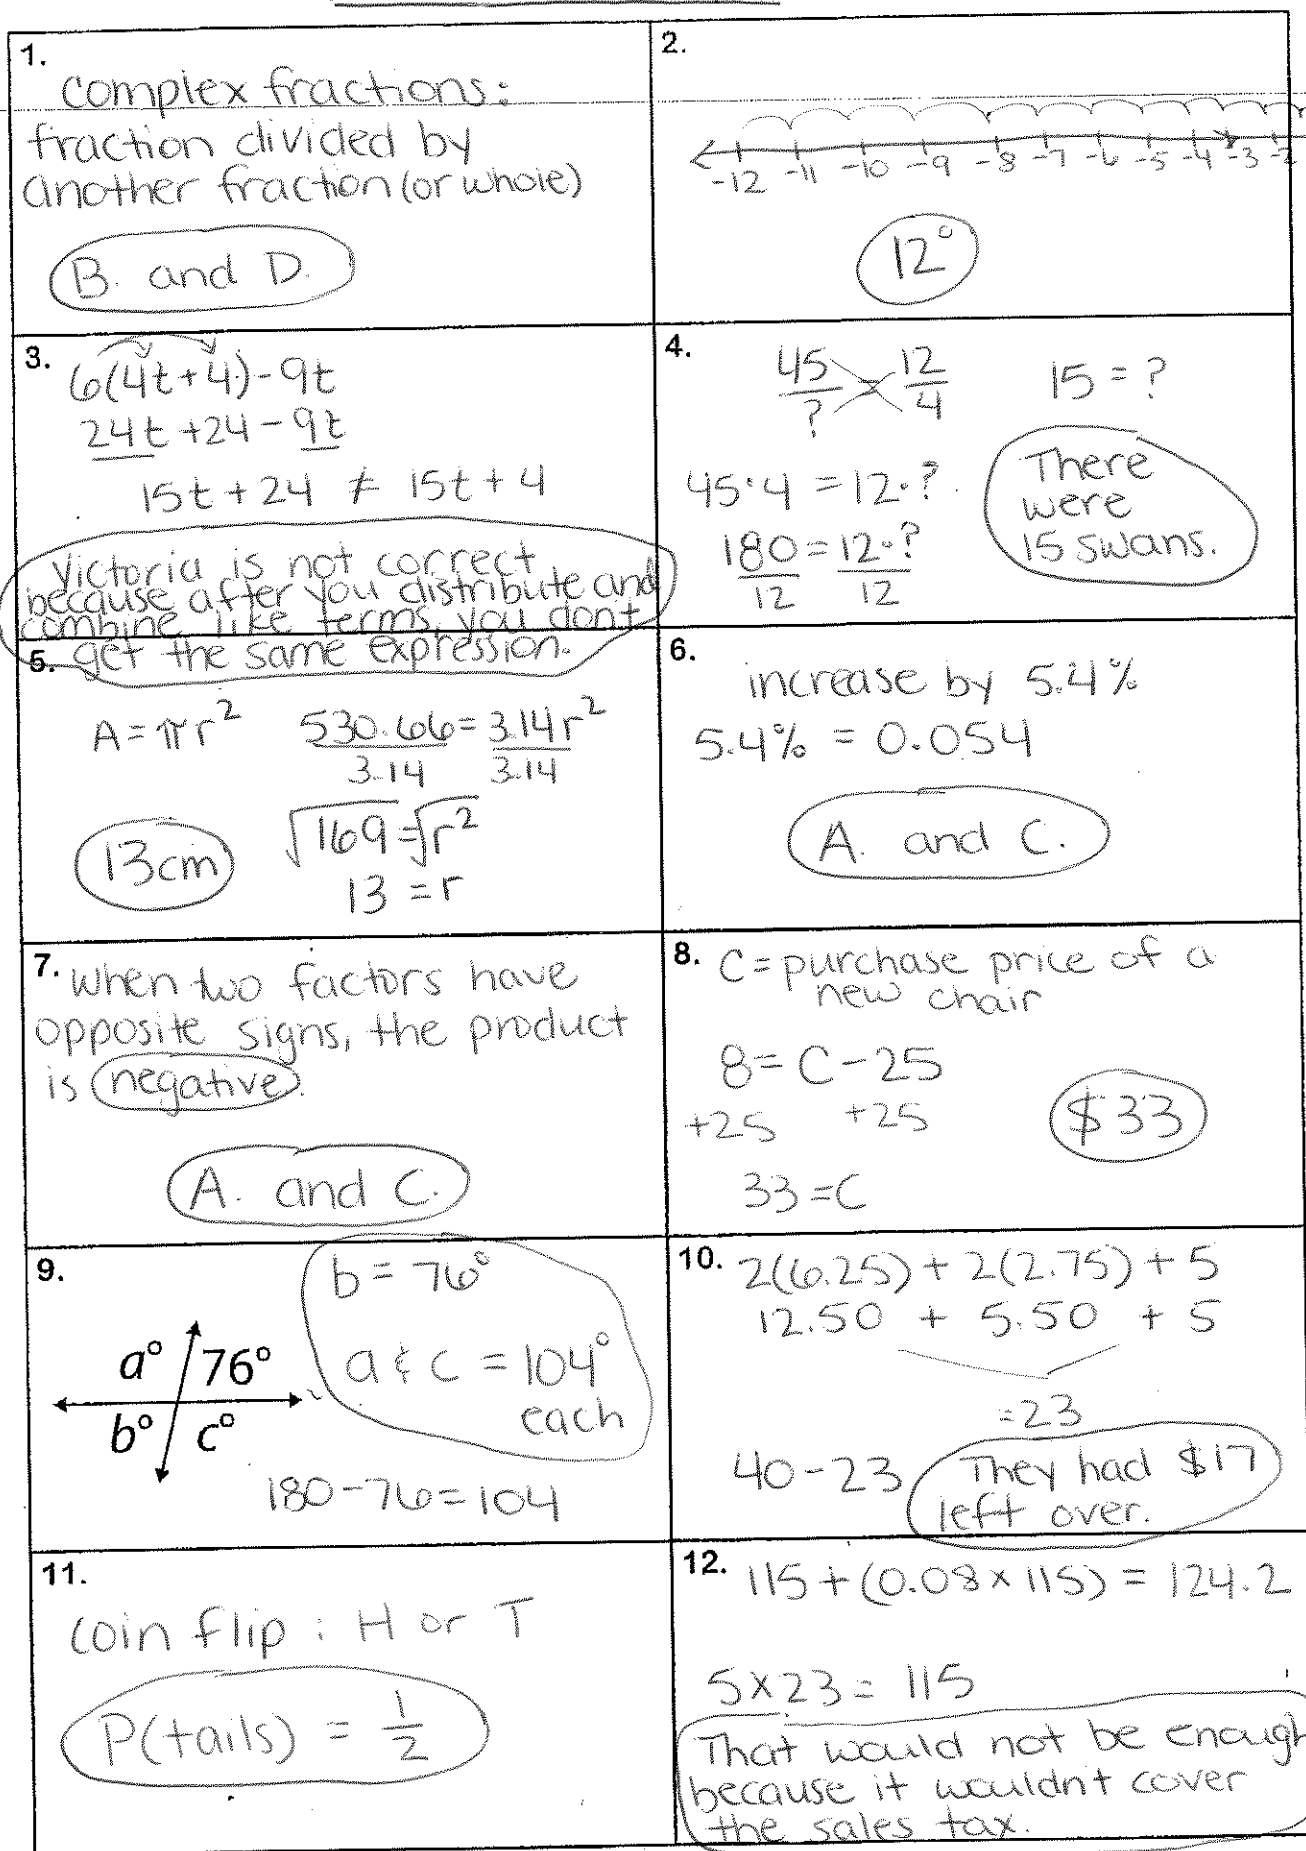 1.
Complex fractions:
fraction divided by
another fraction (or whole)
B. and D.
2.
-12 -11 -10 -9 -8 -7 -6 -5 -4 -3 -2
12°
3. 6(4t+4)-9t
24t+24-9t
15t+24 ≠ 15t+4
Victoria is not correct
because after you distribute and
combine like terms, you don't
get the same expression.
4. 45/? = 12/4
15 = ?
45·4 = 12·?
180/12 = 12·?/12
There
were
15 swans.
5.
A = πr²
530.66/3.14 = 3.14r²/3.14
√169 = √r²
13 = r
13cm
6.
increase by 5.4%
5.4% = 0.054
A. and C.
7. When two factors have
opposite signs, the product
is negative.
A. and C.
8. C = purchase price of a
new chair
8 = C - 25
+25 +25
33 = C
$33
9.
b = 76°
a & c = 104°
each
a° 76°
b° c°
180-76=104
10. 2(6.25) + 2(2.75) + 5
12.50 + 5.50 + 5
=23
40-23
They had $17
left over.
11.
coin flip: H or T
P(tails) = 1/2
12. 115 + (0.08 × 115) = 124.2
5×23 = 115
That would not be enough
because it wouldn't cover
the sales tax.